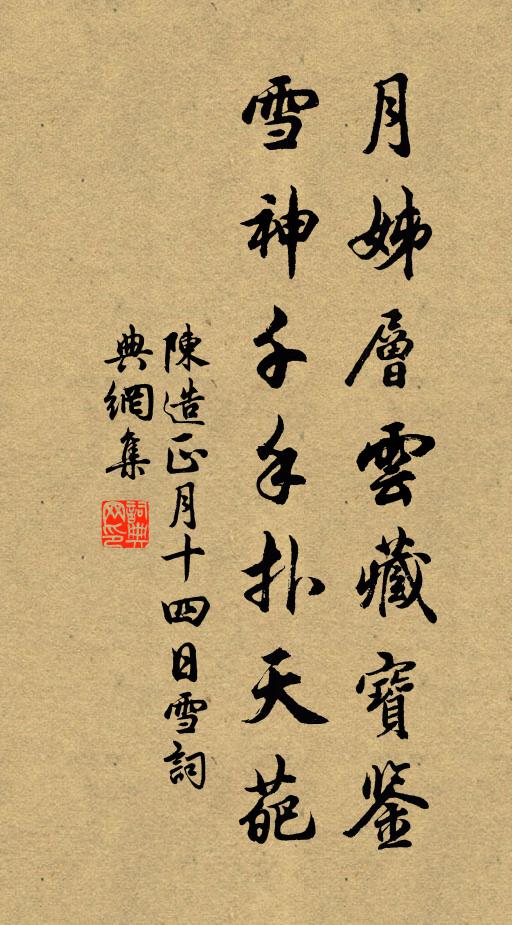 月姊層雲藏寶鑒
雪神千手扑天葩
陳造正月十四日雪詞
典網集
詞典網印